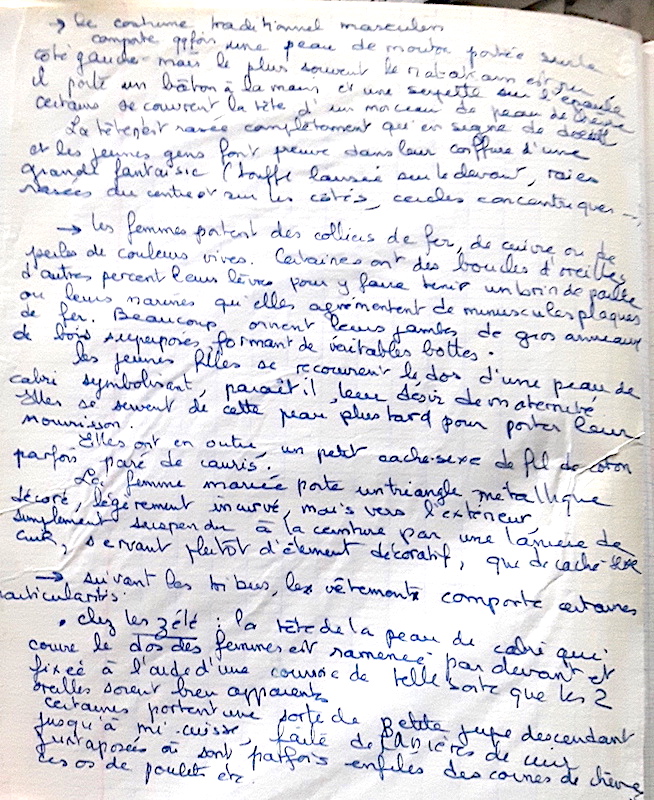 → Le costume traditionnel masculin
comporte qqfois une peau de mouton portée sur le
côté gauche. mais le plus souvent le matakam est nu
il porte un bâton à la main et une serpette sur l'épaule
certains se couvrent la tête d'un morceau de peau de chèvre
La tête n'est rasée complètement qu'en signe de deuil
et les jeunes gens font preuve dans leur coiffure d'une
grande fantaisie (touffe laissée sur le devant, raies
rasées du centre et sur les côtés, cercles concentriques
→ les femmes portent des colliers de fer, de cuivre ou de
perles de couleurs vives. Certaines ont des boucles d'oreilles
d'autres percent leurs lèvres pour y faire tenir un brin de paille
ou leurs narines qu'elles agrémentent de minuscules plaques
de fer. Beaucoup ornent leurs jambes de gros anneaux
de bois superposés formant de véritables bottes.
les jeunes filles se recouvrent le dos d'une peau de
cabri symbolisant, paraît il, leur désir de maternité
Elles se servent de cette peau plus tard pour porter leur
nourrisson.
Elles ont en outre, un petit cache-sexe de fil de coton
parfois paré de cauris.
La femme mariée porte un triangle métallique
décoré, légèrement incurvé, mais vers l'extérieur
simplement suspendu à la ceinture par une lanière de
cuir, servant plutôt d'élément décoratif, que de cache-sexe
→ suivant les tribus, les vêtements comporte certaines
particularités.
• chez les zélé : la tête de la peau de cabri qui
couvre le dos des femmes est ramenée par devant et
fixée à l'aide d'une courroie de telle sorte que les 2
oreilles soient bien apparentes
certaines portent une sorte de petite jupe descendant
jusqu'à mi-cuisse, faite de lanières de cuir
juxtaposées où sont parfois enfilés des cornes de chèvre
des os de poulets etc.